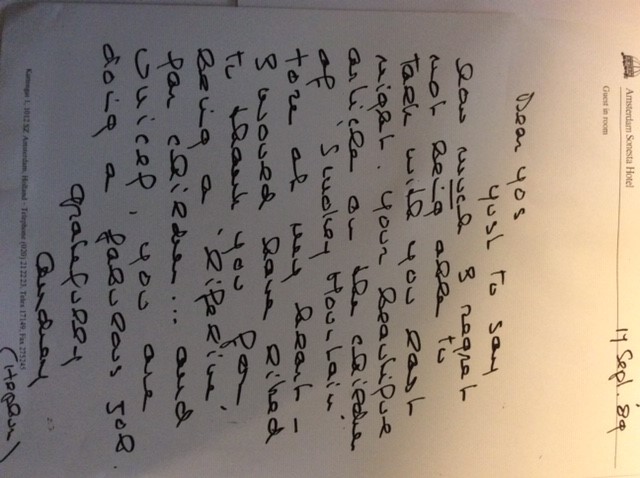 Amsterdam Sonesta Hotel
Guest in room
14 Sept. '89
Dear Jos
Just to say
how much I regret
not being able to
talk with you last
night. Your beautiful
article on the children
of 'Smokey Mountain'
tore at my heart —
I would have liked
to thank you for
being a 'lifeline'
for children... and
Unicef. You are
doing a fabulous job.
Gratefully
Audrey
(Hepburn)
Kattengat 1, 1012 SZ Amsterdam, Holland · Telephone (020) 212223, Telex 17149, Fax 275245